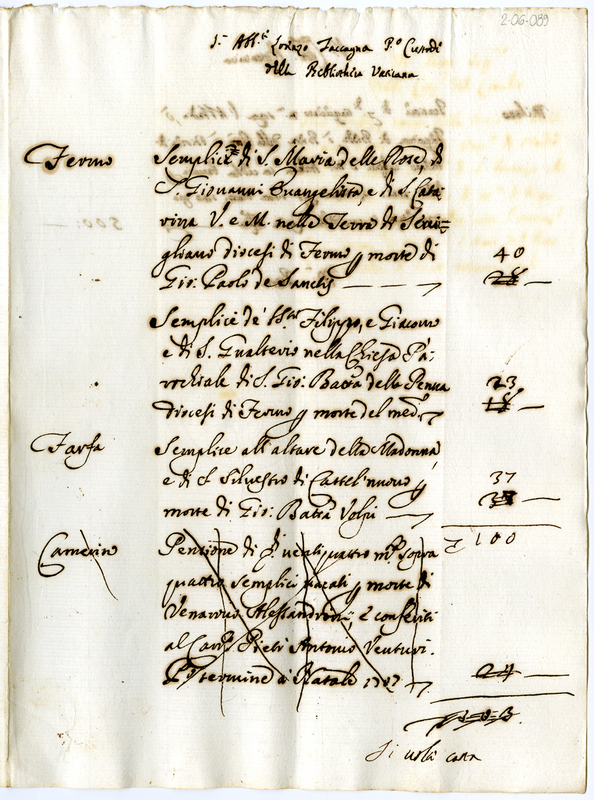 2-06-089
S.r Abb.e Lorenzo Zaccagna P.o Custode
della Bibliotheca Vaticana
Fermo Semplici di S. Maria delle Rose, di
S. Giovanni Evangelista, e di S. Cata
rina V. e M. nella Terra di Servi=
gliano diocesi di Fermo p morte di 40
Gio: Paolo de Sanctis
Semplici de' SS.ti Filippo, e Giacomo
e di S. Gualterio nella Chiesa Pa
rochiale di S. Gio: Batta della Penna 23
diocesi di Fermo p morte del med.o
Farfa Semplice all'altare della Madonna
e di S. Silvestro di Castel nuovo p 37
morte di Gio: Batta Volpi
100
Camerino Pensione di quatro sopra
quattro semplici p morte di
Venanzo Alessandrini, e conferiti
al Pietr' Antonio Venturi.
P.o termine a Natale 24
103.
Si carta